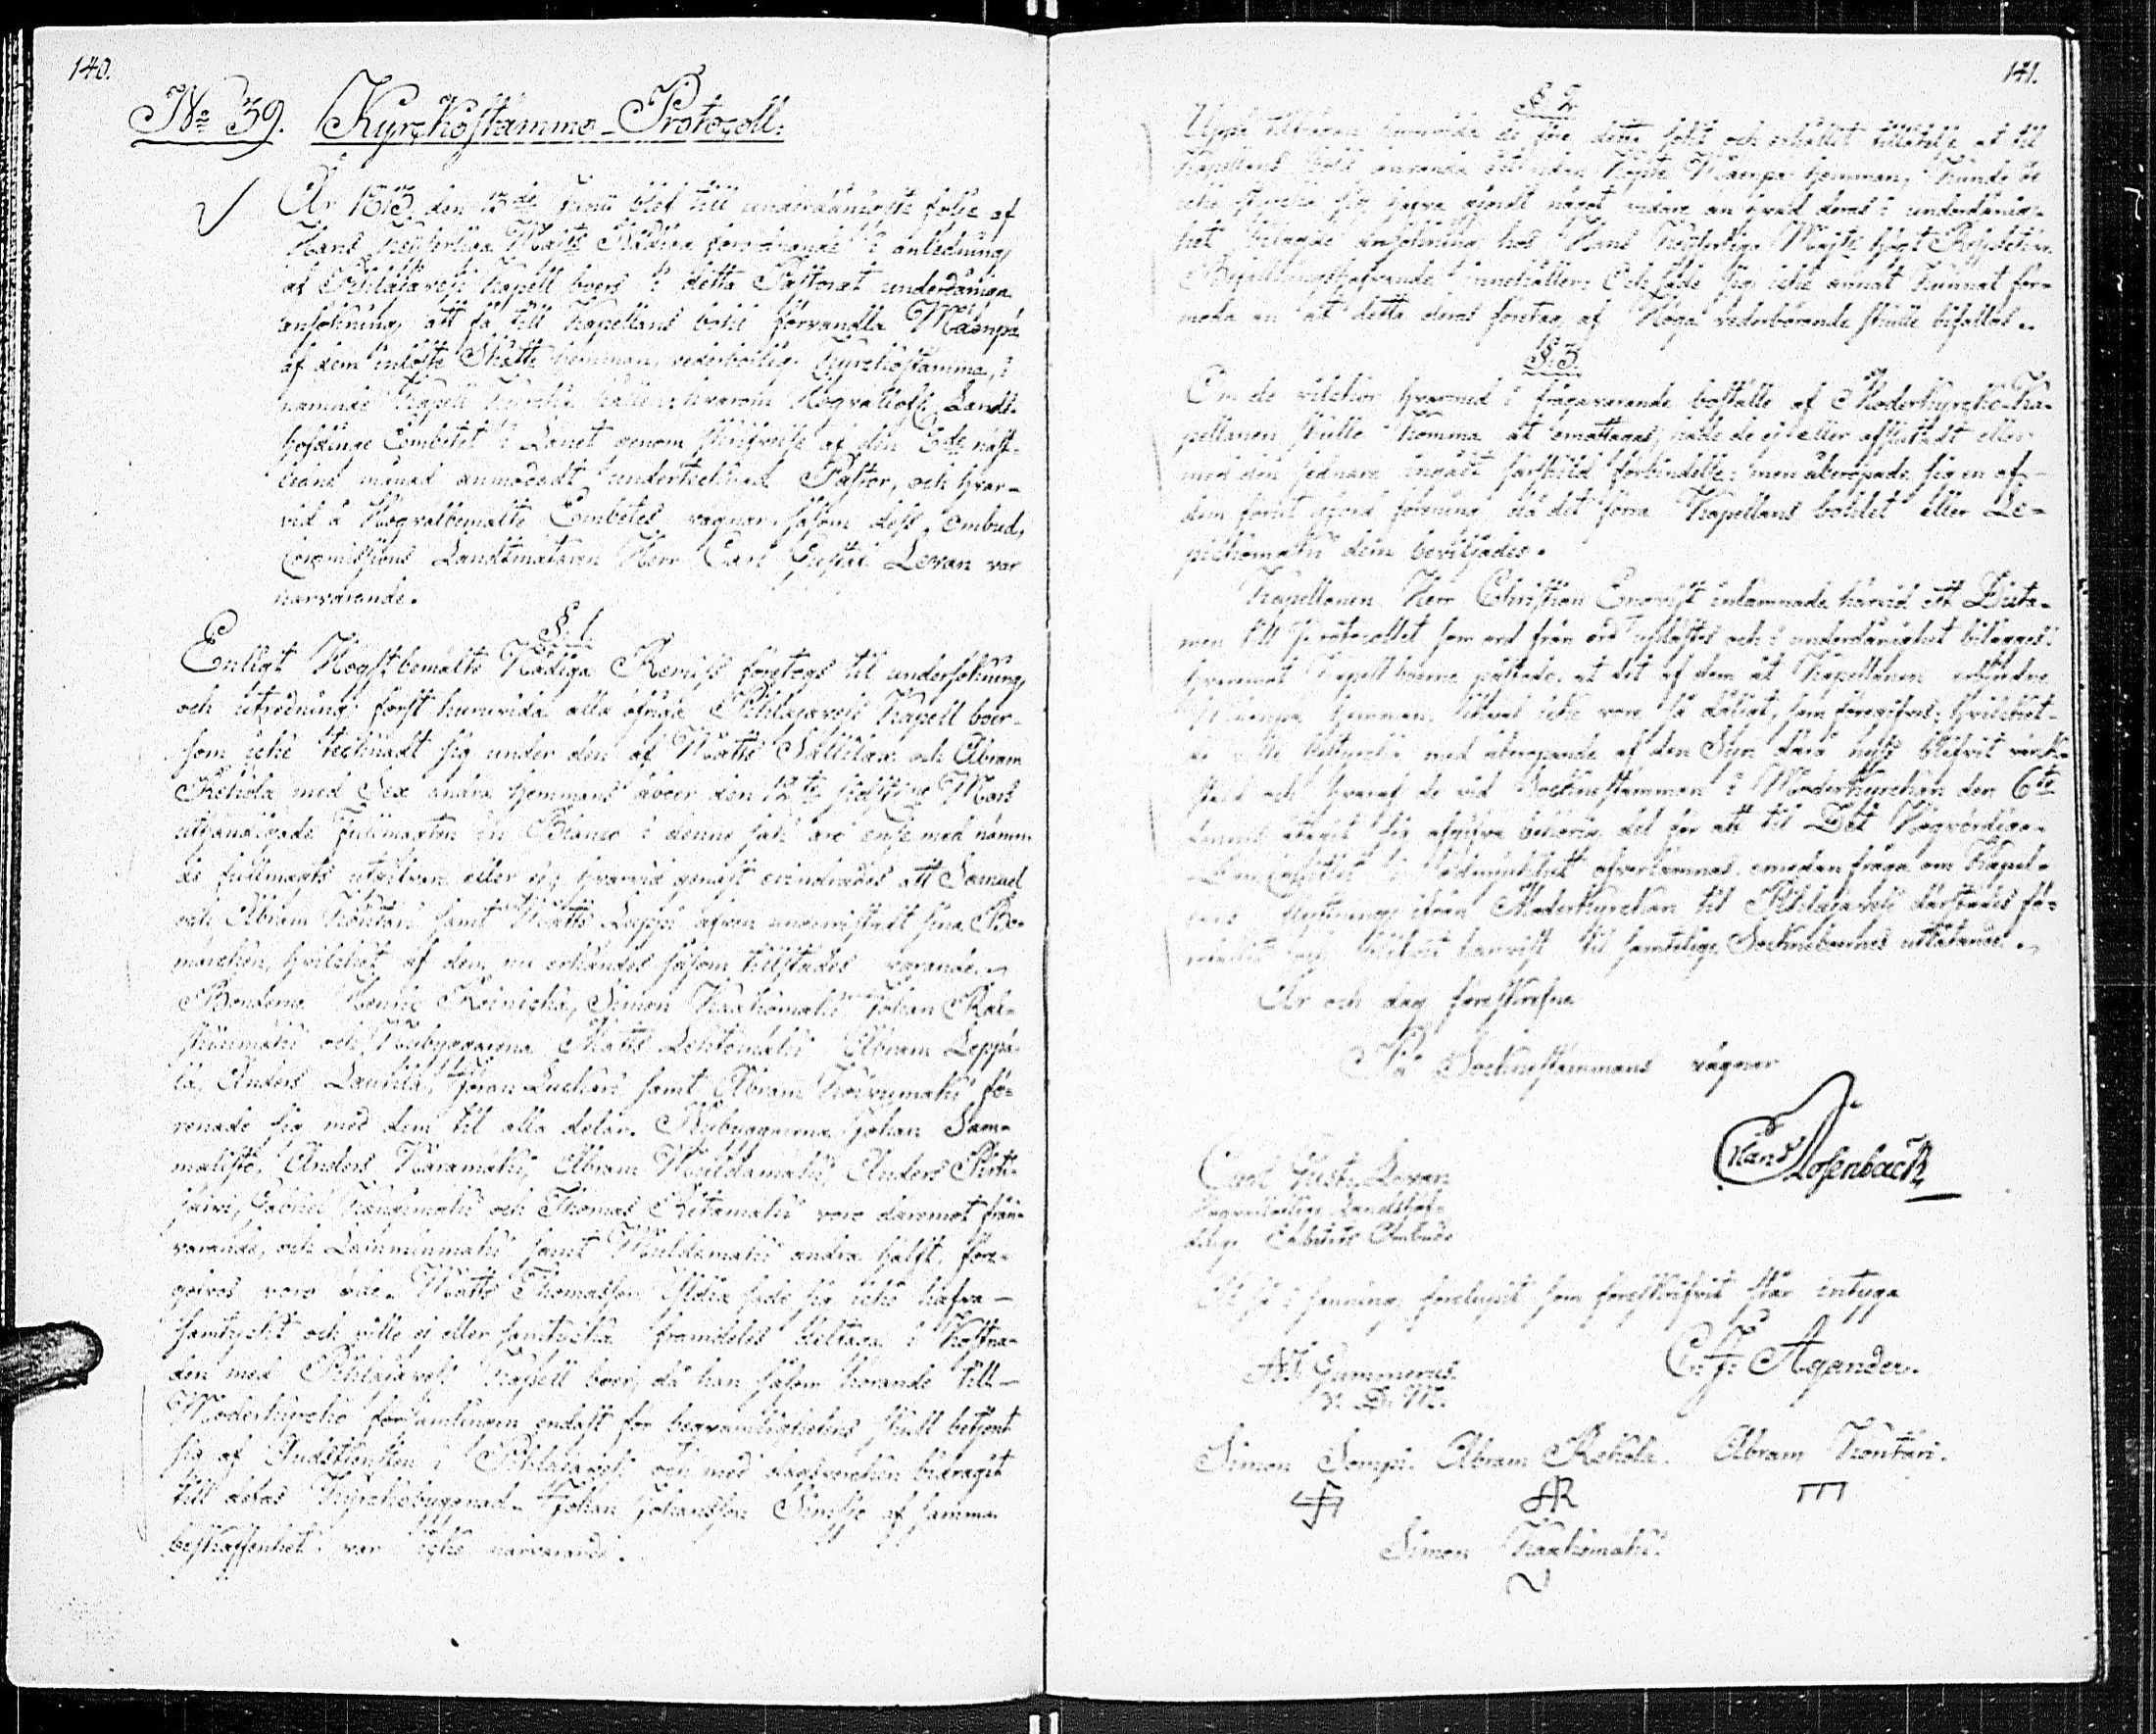 140.
No 39. Kyrckostämmo-Protocoll.
År 1813 den 13de Junii blef till underdånigste följe af
Hans Kejserliga Maijts Nådiga förordnande i anledning
af Pihlajavesi Kapell boers i detta Pastorat underdåniga
ansökning, att få till Kapellans bohl förvandla Mäenpä
af dem inlöste Skatte hemman, vederbörlig Kyrckostämma, i
nämnde Kapell Kyrcka hållen, hvarom Högvällofl. Lands-
höfdinge Embetet i Länet genom skrifvelse af den näst-
ledne månad anmodadt undertecknad Pastor, och hvar-
vid å Högvälbemälte Embetes vägnar, såsom dess ombud,
Commissions Landtmätaren Herr Carl Gustaf Levan var
närvarande.
§. 1.
Enligt Högstbemälte Nådiga Remiss företogs til undersökning
och utredning först huruvida alla öfriga Pihlajavesi Kapell boer
som icke tecknadt sig under den af Matts Sällilax och Abram
Rekola med Sex andra hemmans åboer den 12te sistledne Mars
utfärdigade Fullmagten in Blanco i denne sak äro ense med nämn-
de fullmagts utgifvare eller ej, hvarvid genast erindrades att Samuel
och Abram Kontari samt Matts Leppi äfven underristadt sina Bo-
märcken, hvilcket af dem nu erkändes såsom tillstädes varande.
Bönderne Henric Reinicka, Simon Kaakomäki Johan Rai-
skinmäki och Nybyggarena Matts Lehtomäki Abram Leppä-
lä, Anders Laurila, Göran Luckari samt Abram Koivumäki fö-
renade sig med dem til alla delar. Nybyggarena Johan Sam-
malisto, Anders Karamäki, Abram Muldamäki, Anders Pitti-
järvi, Gabriel Kangimäki och Thomas Rietamäki voro däremot från-
varande, och Lamminmäki samt Muldamäki andra hälft, före-
gofvos vara öde. Matts Thomasson Yldia sade sig icke hafva
samtyckt och ville ej eller samtycka framdeles deltaga i kostna-
den med Pihlajavesi Kapell boer, då han såsom hörande till
Moderkyrcko församlingen endast för beqvämlighetens skull betjent
sig af Gudstiensten i Pihlajavesi och med dagsvercken bidragit
till detas Kyrckobyggnad. Johan Johansson Sinisjo af samma
beskaffenhet var icke närvarande.
141.
§ 2.
Uppå tillfrågan huruvida de före detta sökt och erhållit tillåtelse at til
Kapellans bohl använda åtnämde Köpte Mäenpä hemman, Kunde de
icke styrcka sig hafva gjordt något vidare än hvad deras i underdånig-
het ansökning hos Hans Kejserliga Majts högt Respective
innehåller: Och hade sig icke annat kunnat för-
moda än at detta deras företag af Höga vederbörande skulle bifallas.
§. 3.
Om de vilckor hvarmed i frågavarande boställe af Moderkyrcko-Ka-
pellanen skulle komma at emottagas, hade de ej eller afslutadt eller
med den sednare ingådt särskild förbindelse: men åberopade sig en af
dem förut gjord förening då det förra Kapellans bohlet eller Le-
pickomäki dem beviljades.
Kapellanen Herr Christian Enqvist inlämnade härvid ett Dicta-
men till Protocollet som ord från ord upplästes och i underdånighet bilägges:
hvaremot Kapell boerne påstodo, at det af dem åt Kapellanen erbjudne
Mäenpä hemman, likväl icke vore så dåligt, som föregifves; hvilcket
de ville bestyrcka med åberopande af den Syn därå nyss blifvit värk-
stäld och hvaraf de vid Socknestämman i Moderkyrckan den 6te
åtagit sig afgifva behörig del för att til Det Högvördiga
Dom Capitlet i ödmjukhet öfverlämnas emedan fråga om Kapel-
lans flyttning ifrån Moderkyrckan til Pihlajavesi därstädes fö-
til samtelige Socknebornes utlåtande.
År och dag förestkrefne
På Socknestämmans vägnar
Hans Rosenback
Carl Gust. Levan
Högvällofliga Landshöf-
dinge Embetets Ombud
At så i sanning förelupit som föreskrifvit står intyga
A. J. Gummerus. C. F. Agander.
V. D. M.
Simon Sompi. Abram Rekola. Abram Kontari.
AR
Simon Kaakomäki.